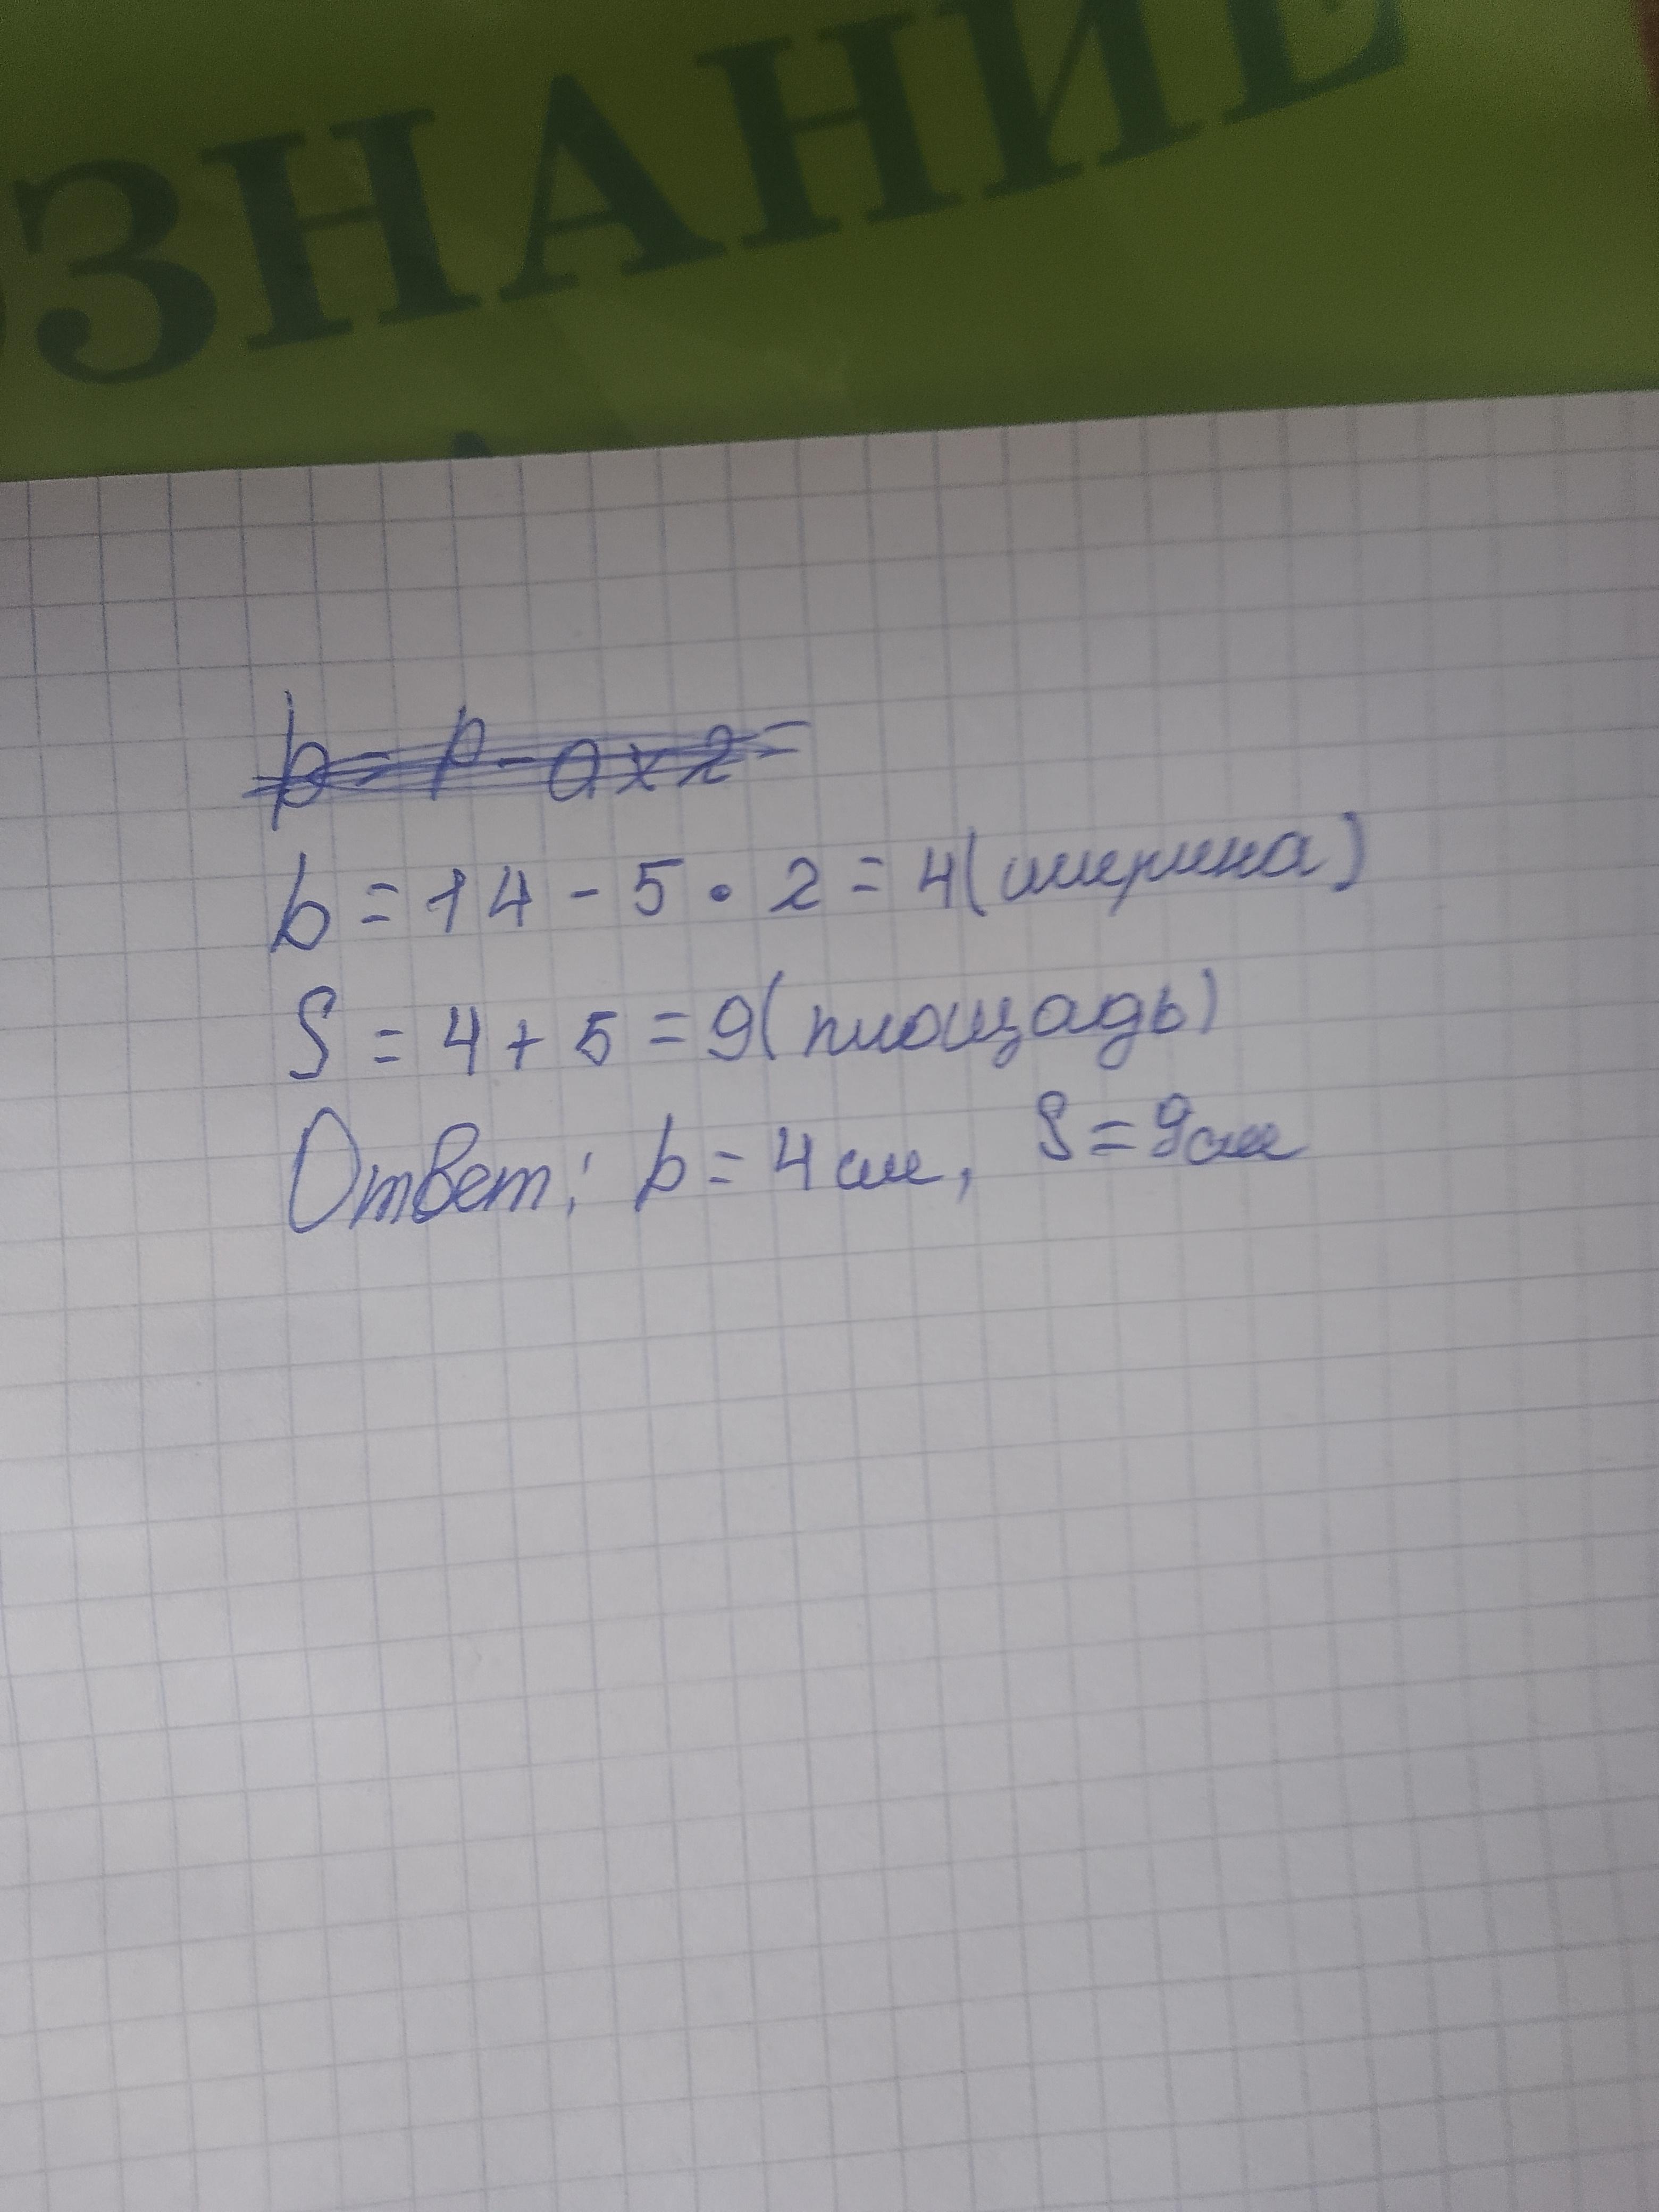 ОЗНАНИЕ
b = P - a x 2 =
b = 14 - 5 • 2 = 4 (ширина)
S = 4 + 5 = 9 (площадь)
Ответ: b = 4 см, S = 9 см